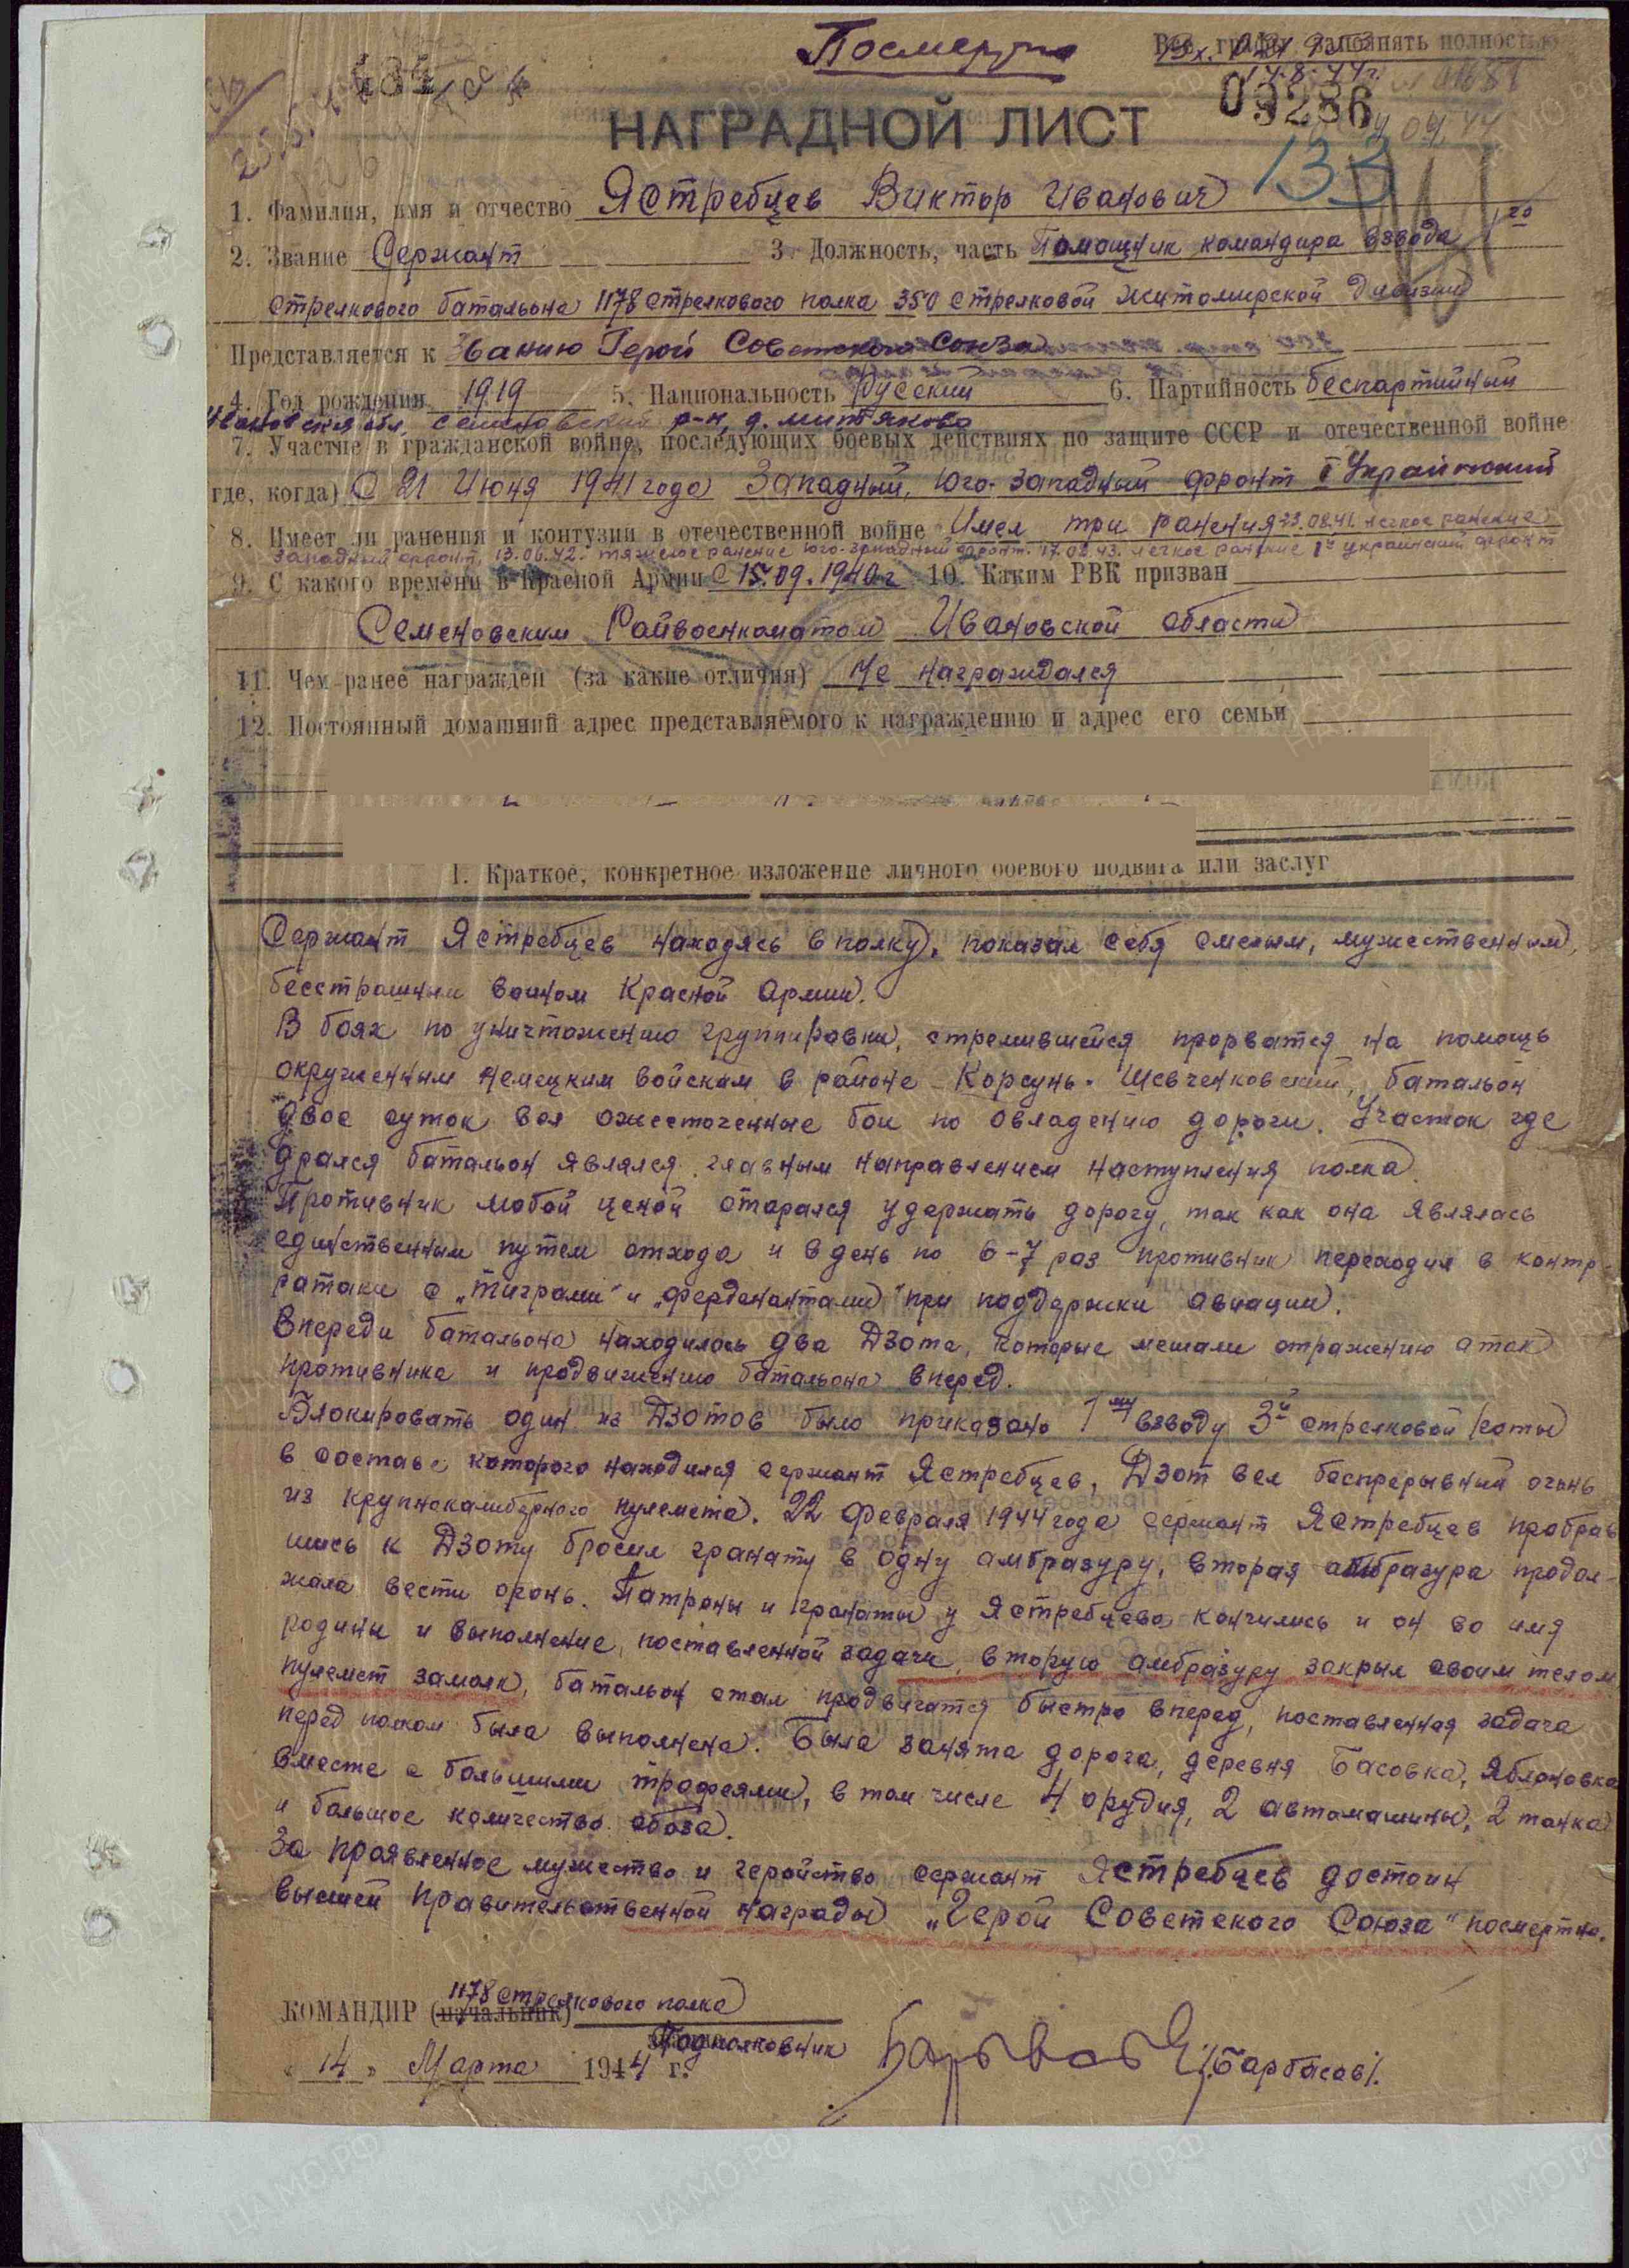 Посмертно
Все графы заполнять полностью
484
09286
НАГРАДНОЙ ЛИСТ
133
1. Фамилия, имя и отчество Ястребцев Виктор Иванович
2. Звание Сержант 3. Должность, часть Помощник командира взвода
стрелкового батальона 1178 стрелкового полка 350 стрелковой Житомирской дивизии
Представляется к званию Герой Советского Союза
4. Год рождения 1919 5. Национальность Русский 6. Партийность беспартийный
Ивановская обл, Семёновский р-н, д. Митяково
7. Участие в гражданской войне, последующих боевых действиях по защите СССР и отечественной войне
где, когда) С 21 Июня 1941 года Западный, Юго-западный фронт I Украинский
8. Имеет ли ранения и контузии в отечественной войне Имел три ранения 23.08.41. легкое ранение
западный фронт, 13.06.42. тяжелое ранение юго-западный фронт. 17.02.43. легкое ранение 1й украинский фронт
9. С какого времени в Красной Армии С 15.09.1940 г. 10. Каким РВК призван
Семеновским Райвоенкоматом Ивановской области
11. Чем ранее награжден (за какие отличия) Не награждался
12. Постоянный домашний адрес представляемого к награждению и адрес его семьи
I. Краткое, конкретное изложение личного боевого подвига или заслуг
Сержант Ястребцев находясь в полку, показал себя смелым, мужественным,
бесстрашным воином Красной Армии.
В боях по уничтожению группировки, стремившейся прорватся на помощь
окруженным немецким войскам в районе Корсунь-Шевченковский, батальон
двое суток вел ожесточенные бои по овладению дороги. Участок где
дрался батальон являлся главным направлением наступления полка.
Противник любой ценой старался удержать дорогу, так как она являлась
единственным путем отхода и в день по 6-7 раз противник переходил в контр-
ратаки с „тиграми" и „Ферденантами" при поддержки авиации.
Впереди батальона находилось два Дзота, которые мешали отражению атак
противника и продвижению батальона вперед.
Блокировать один из Дзотов было приказано 1му взводу 3й стрелковой роты
в составе которого находился сержант Ястребцев, Дзот вел беспрерывный огонь
из крупнокалиберного пулемета. 22 февраля 1944 года сержант Ястребцев пробрав
шись к Дзоту бросил гранату в одну амбразуру, вторая амбразура продол-
жала вести огонь. Патроны и гранаты у Ястребцева кончились и он во имя
родины и выполнение поставленной задачи, вторую амбразуру закрыл своим телом
пулемет замолк, батальон стал продвигатся быстро вперед, поставленная задача
перед полком была выполнена. Была занята дорога, деревня Басовка, Яблоновка
вместе с большими трофеями, в том числе 4 орудия, 2 автомашины, 2 танка
и большое количество обоза.
За проявленное мужество и геройство сержант Ястребцев достоин
высшей правительственной награды „Герой Советского Союза" посмертно.
1178 стрелкового полка
КОМАНДИР (начальник)
Подполковник
/Барбасов/.
„14" Марта 1944 г.